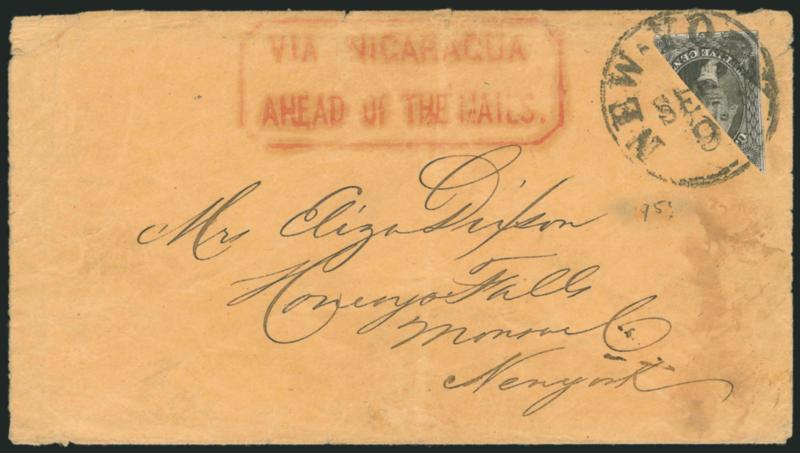 VIA NICARAGUA
AHEAD OF THE MAILS.
NEW-YO
SEP
9
Mrs Eliza Dixson
Honeoye Falls
Monroe Co.
Newyork